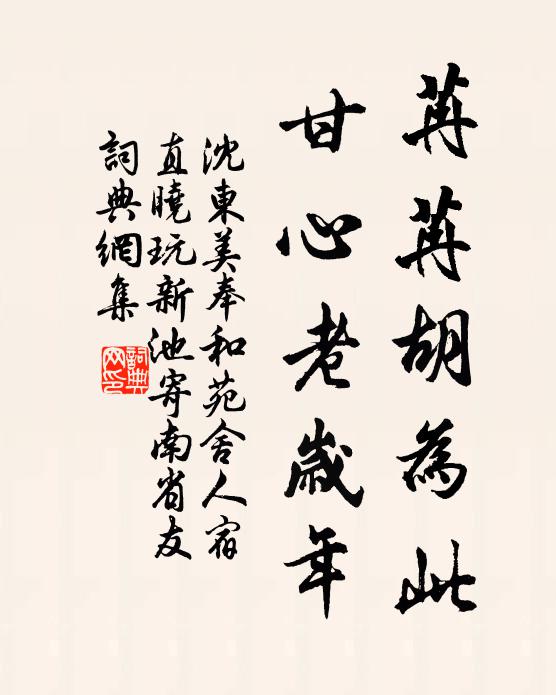 苒苒胡為此
甘心老歲年
沈東美奉和苑舍人宿
直曉玩新池寄南省友
詞典網集
詞典網印